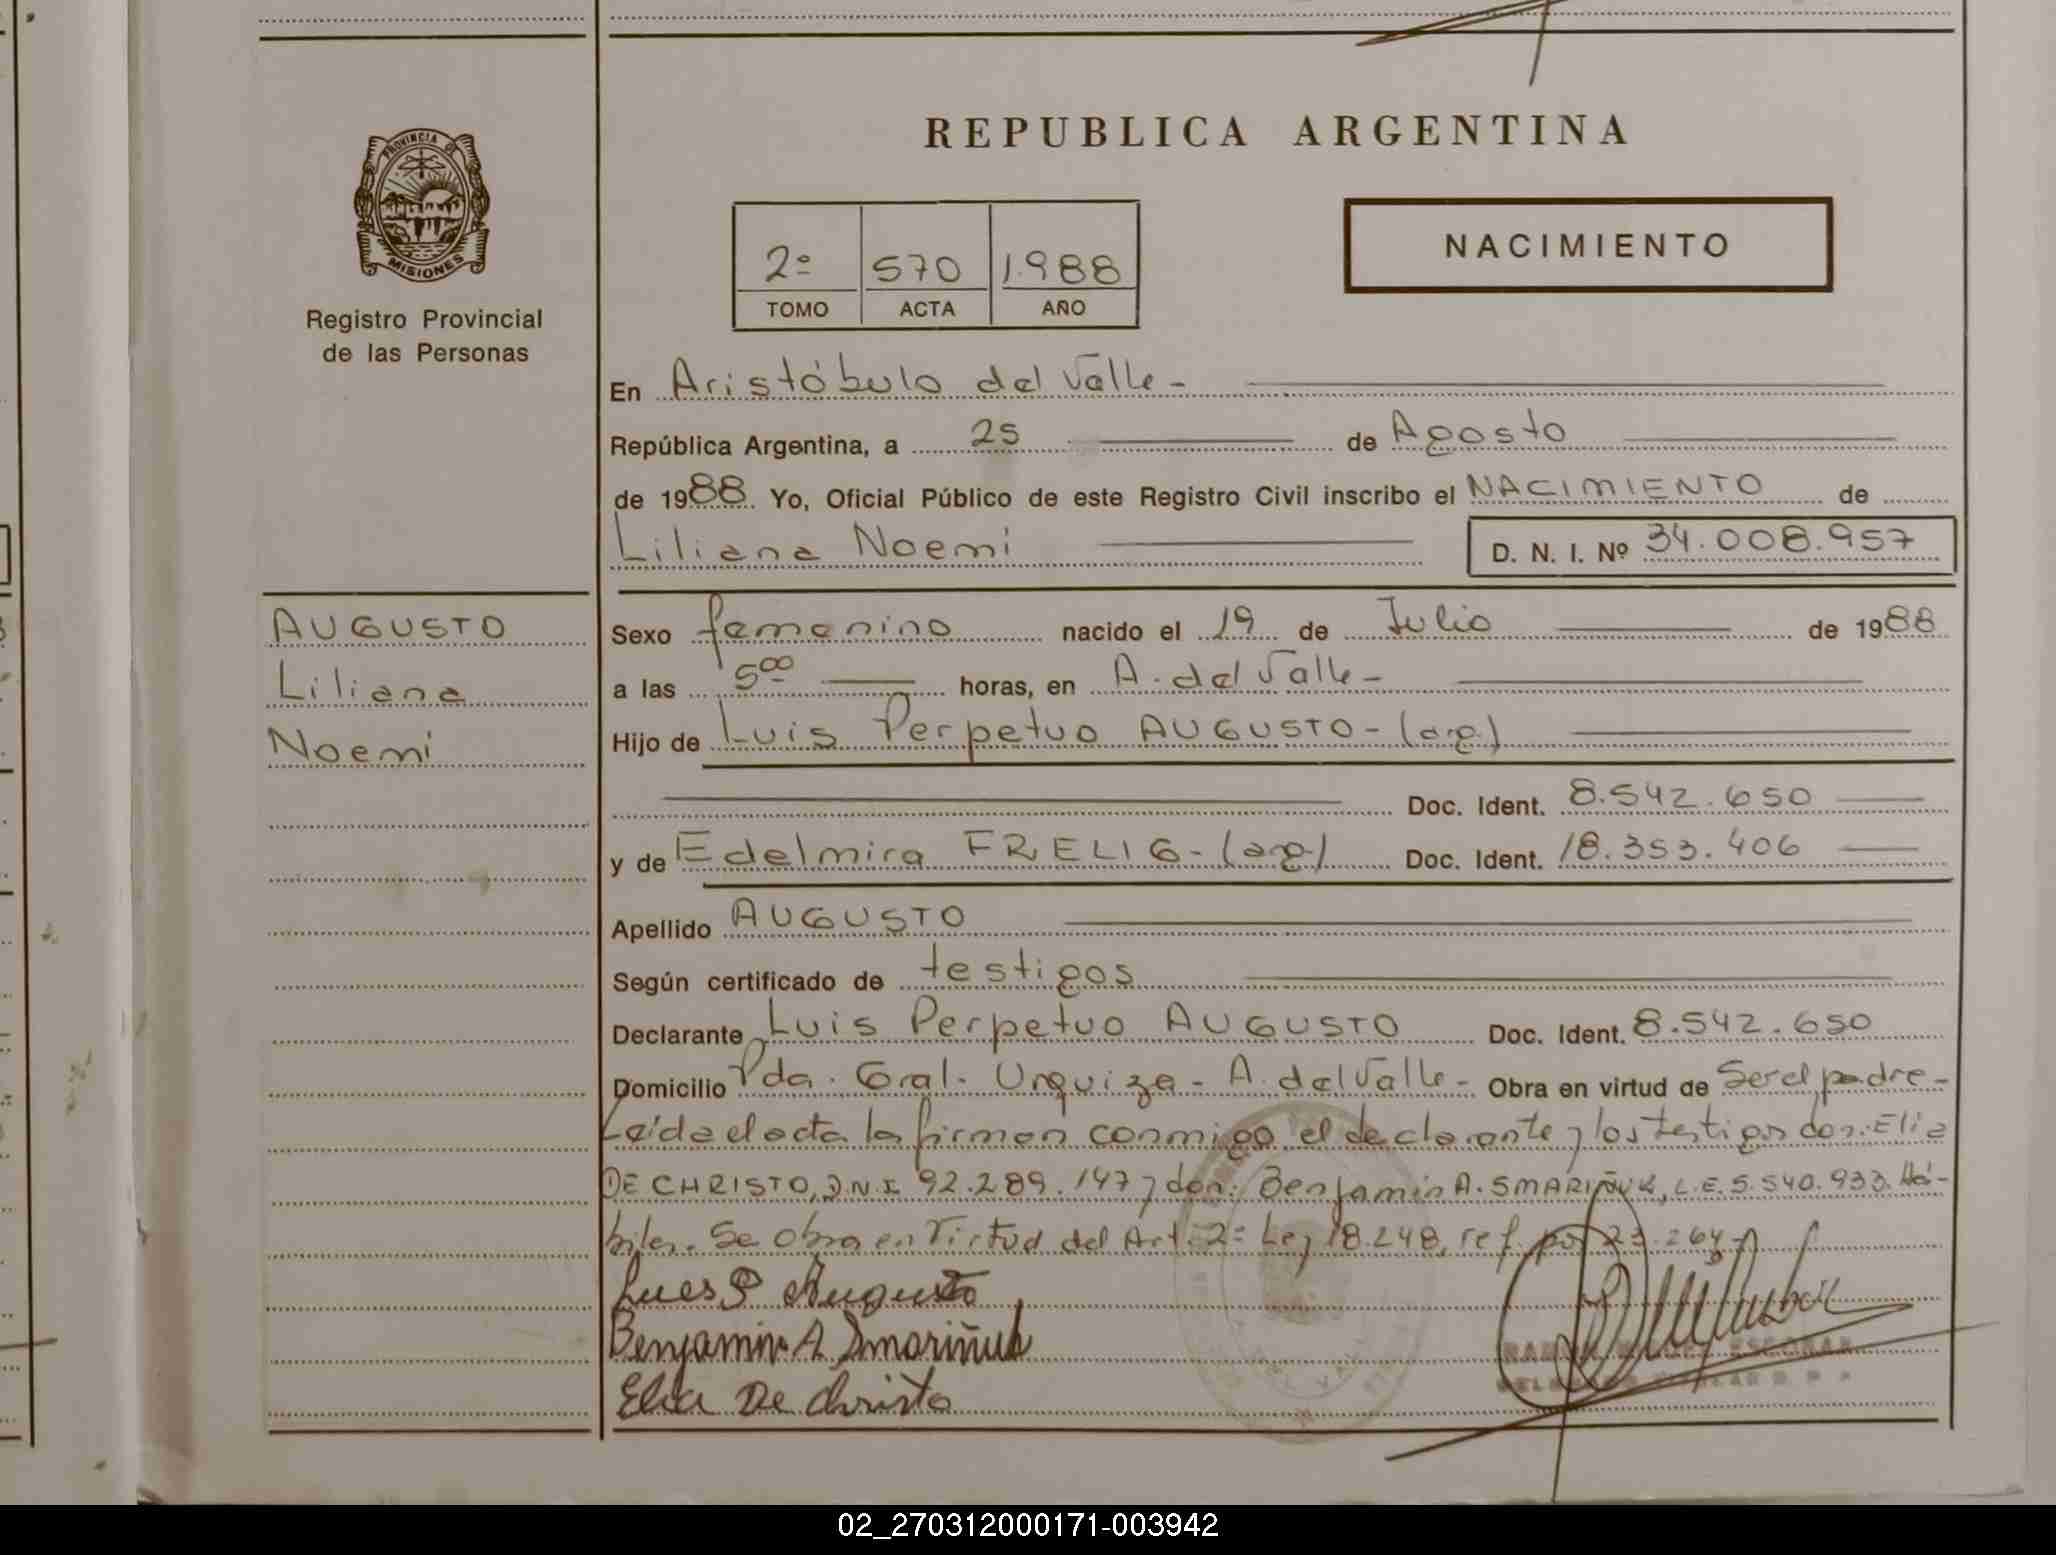 REPUBLICA ARGENTINA
PROVINCIA DE
MISIONES
Registro Provincial
de las Personas
2º 570 1.988
TOMO ACTA AÑO
NACIMIENTO
En Aristóbulo del Valle -
República Argentina, a 25 de Agosto
de 1988. Yo, Oficial Público de este Registro Civil inscribo el NACIMIENTO de
Liliana Noemi D. N. I. Nº 34.008.957
AUGUSTO
Liliana
Noemi
Sexo femenino nacido el 19 de Julio de 1988
a las 5⁰⁰ horas, en A. del Valle -
Hijo de Luis Perpetuo AUGUSTO - (arg)
Doc. Ident. 8.542.650
y de Edelmira FRELIG - (arg) Doc. Ident. 18.353.406
Apellido AUGUSTO
Según certificado de testigos
Declarante Luis Perpetuo AUGUSTO Doc. Ident. 8.542.650
Domicilio Pda. Gral. Urquiza - A. del Valle - Obra en virtud de Ser el padre -
Leída el acta la firman conmigo el declarante y los testigos don: Elia
DE CHRISTO, D.N.I. 92.289.147 y don: Benjamin A. SMARIÑUK, L.E. 5.540.933. Há-
biles. Se obra en Virtud del Art. 2º Ley 18.248, ref. por 23.264 -
Luis P Augusto
Benjamin A Smariñuk
Elia De Christo
ESCOBAR
02_270312000171-003942